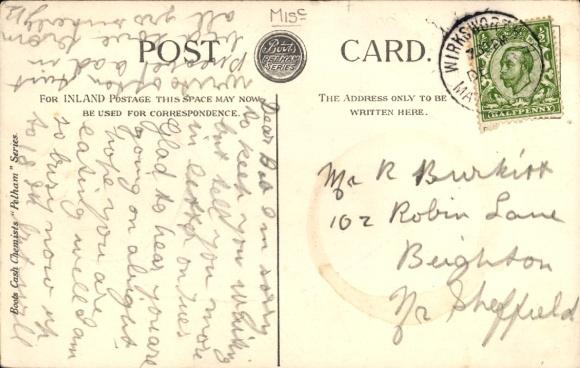 M15c
POST CARD.
Boots
PELHAM
SERIES
FOR INLAND POSTAGE THIS SPACE MAY NOW
BE USED FOR CORRESPONDENCE.
THE ADDRESS ONLY TO BE
WRITTEN HERE.
WIRKSWORTH
HALFPENNY
Boots Cash Chemists "Pelham" Series.
Dear Bob I m sorry
to keep you waiting
but tell you more
in letter on Tues
Glad to hear you are
going on alright
hope you are
eating well I am
so busy now up
to
will
write often
all
Mr R Burkitt
102 Robin Lane
Beighton
Nr Sheffield